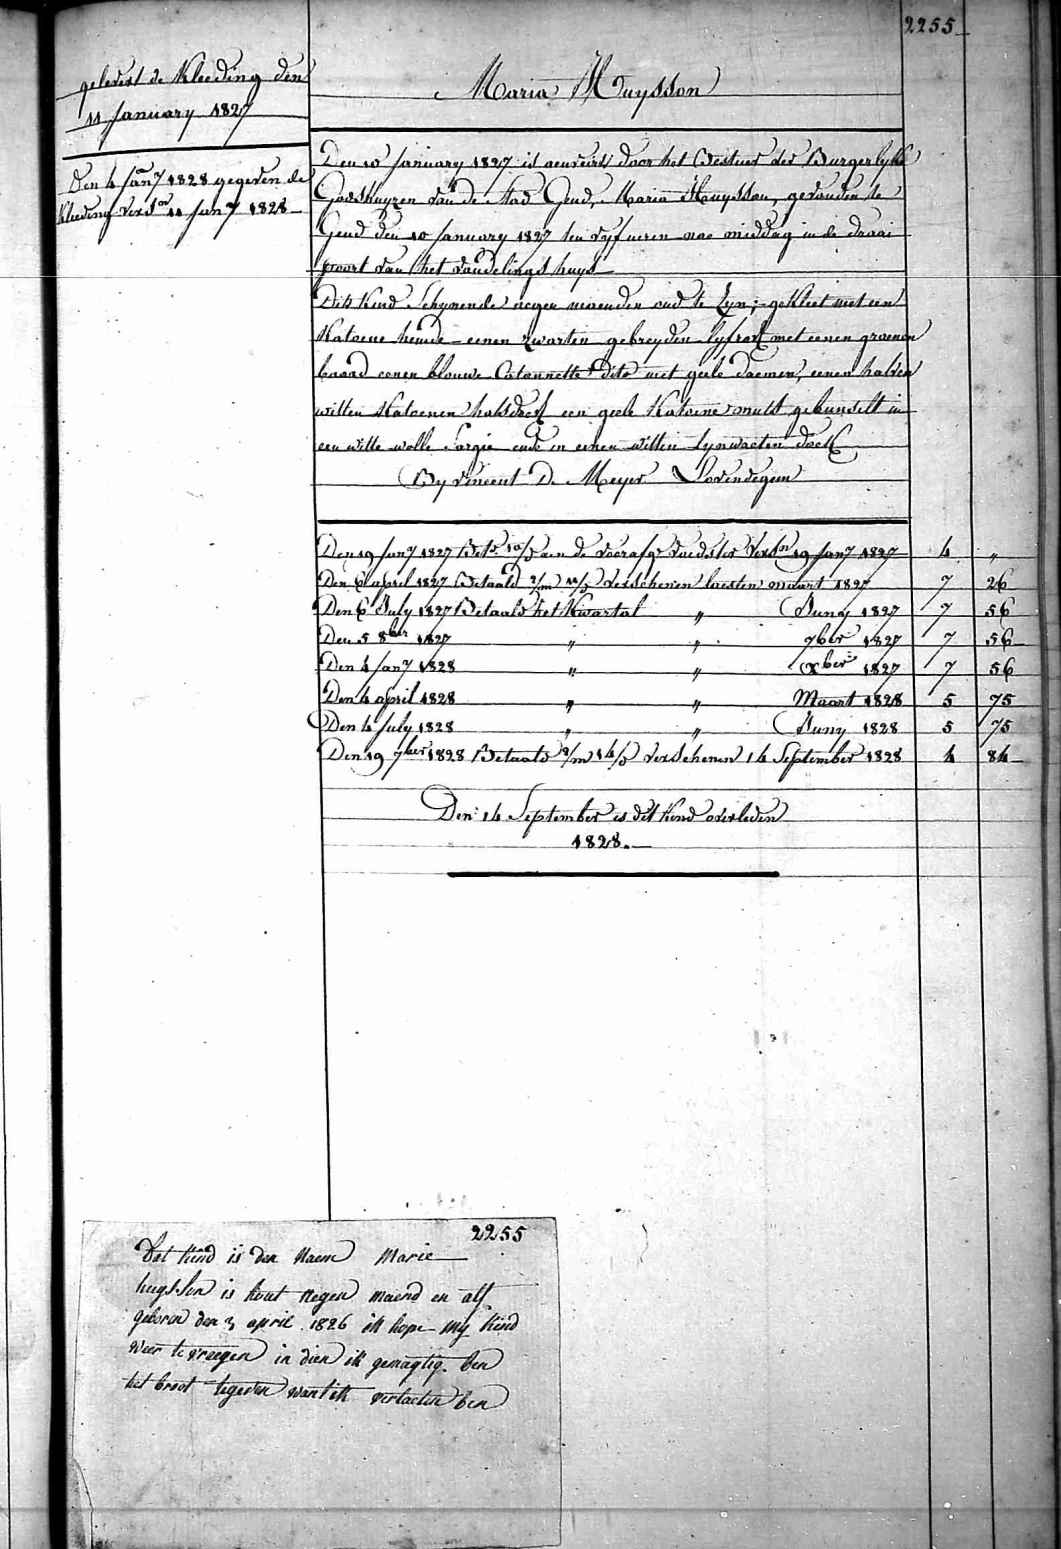 2255
gelevert de Kleeding den
11 January 1827
Den 4 Jany 1828 gegeven de
Kleeding versch 11 Jany 1828
Maria Huysson
Den 10 January 1827 is aenveirt door het Bestuur der Burgerlyke
Godshuyzen van de Stad Gend, Maria Huysson, gevonden te
Gend den 10 January 1827 ten vyf ueren nae middag in de draai
poort van het vondelings huys
Dits Kind Schynende negen maenden oud te Zyn; gekleet met een
Katoene hemde eenen zwarten gebreyden lyfrok met eenen groenen
baord eenen blouwe Catonnette dito met geele daemen, eenen halven
witten Katoenen halsdoek een geele Katoene muts gebundelt in
een witte wolle Sargie ende in eenen witten Lynwaeten doek
By vincent De Meyer Lovendegem
Den 19 Jany 1827 Bet 10/3 aen de voorafg voedster versn 19 Jany 1827 4 "
Den 6 april 1827 Betaald 2/m 11/3 verschenen laesten maart 1827 7 26
Den 6 July 1827 Betaald het Kwartal " Juny 1827 7 56
Den 5 8ber 1827 " " 7ber 1827 7 56
Den 4 Jany 1828 " " Xber 1827 7 56
Den 4 april 1828 " " Maart 1828 5 75
Den 4 July 1828 " " Juny 1828 5 75
Den 19 7ber 1828 Betaald 2/m 14/3 verschenen 14 September 1828 4 84
Den 14 September is dit Kind overleden
1828.
2255
Det kind is den Naem Marie
huysson is hout negen maend en alf
geboren den 3 april 1826 ik hope my kind
weer te vreegen in dien ik gemagtig ben
het broot te geven want ik verlaeten ben